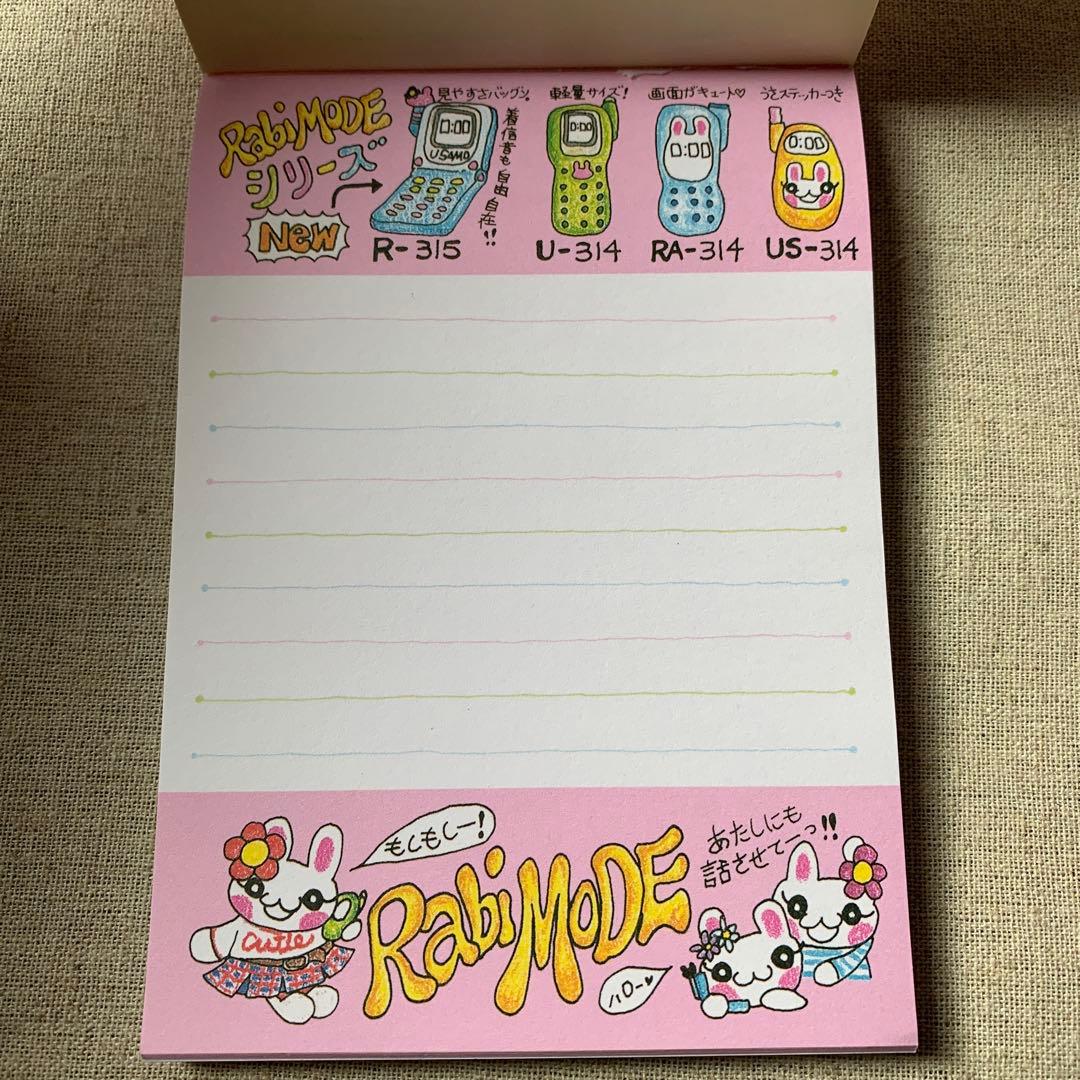 RabiMODE
シリーズ
New
見やすさバツグン。
着信音も自由自在!!
0:00
USAMO
R-315
軽量サイズ!
0:00
U-314
画面がキュート♡
0:00
RA-314
うさステッカーつき
0:00
US-314
もしもしー!
Cutie
RabiMODE
あたしにも
話させてーっ!!
ハロー♥